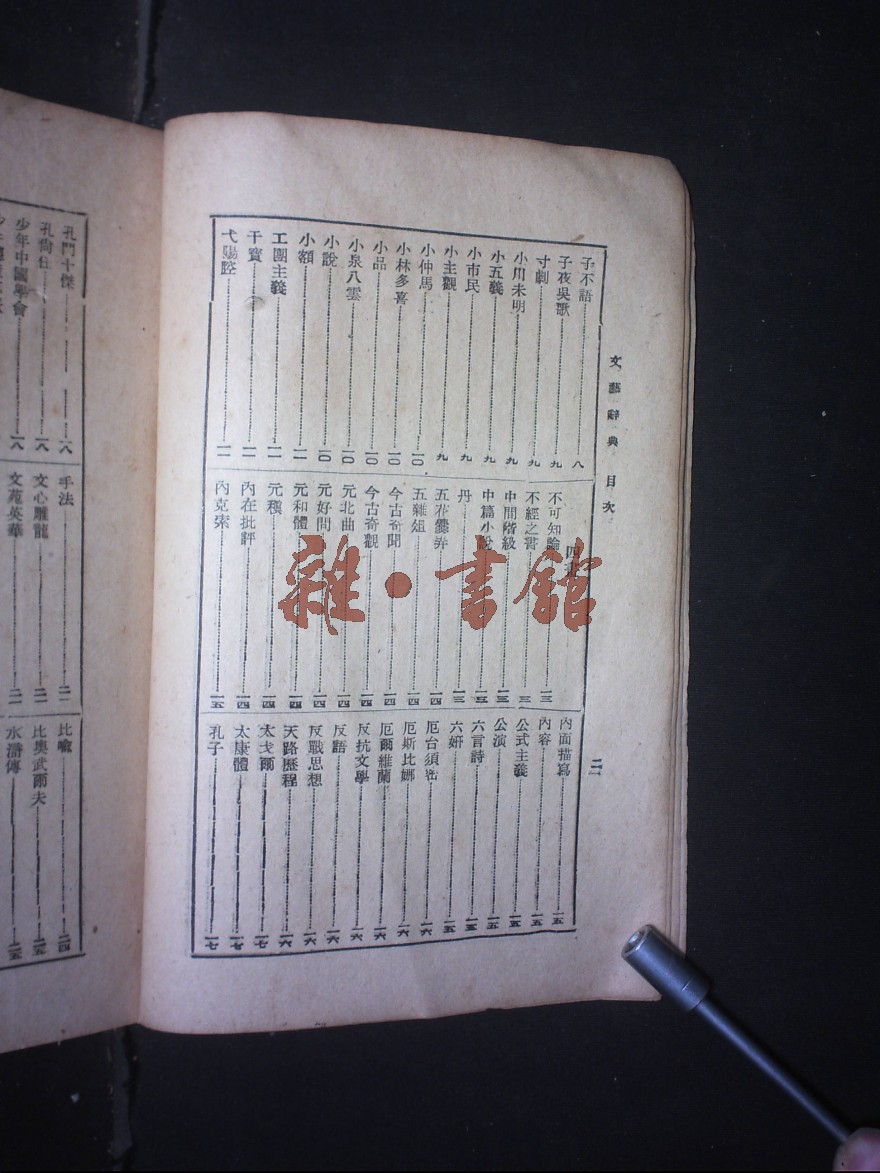 文藝辭典 目次
二
子不語 八
子夜吳歌 九
寸劇 九
小川未明 九
小五義 九
小市民 九
小主觀 九
小仲馬 一〇
小林多喜 一〇
小品 一〇
小泉八雲 一〇
小說 一〇
小額 一一
工團主義 一一
干寶 一一
弋陽腔 一一
四
不可知論 一三
不經之書 一三
中間階級 一三
中篇小說 一三
丹 一三
五花爨弄 一四
五雜俎 一四
今古奇聞 一四
今古奇觀 一四
元北曲 一四
元好問 一四
元和體 一四
元稹 一四
內在批評 一四
內克索 一五
內面描寫 一五
內容 一五
公式主義 一五
公演 一五
六言詩 一五
六妍 一五
厄台須密 一六
厄斯比娜 一六
厄爾維蘭 一六
反抗文學 一六
反語 一六
反戰思想 一六
天路歷程 一六
太戈爾 一七
太康體 一七
孔子 一七
孔門十傑 一八
孔尚任 一八
少年中國學會 一八
手法 二一
文心雕龍 二一
文苑英華 二一
比喻 二四
比奧武爾夫 二五
水滸傳 二五
雜·書館